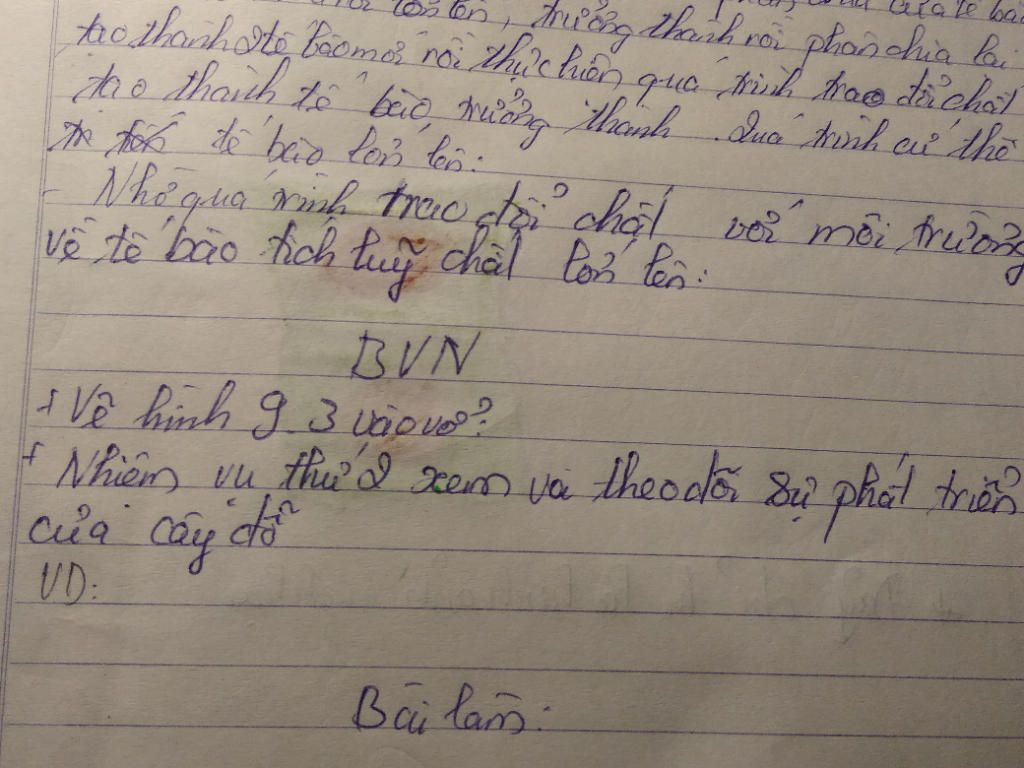 lớn lên, trưởng thành rồi phân chia của tế bào
tạo thành 2 tế bào mới rồi thực hiện quá trình trao đổi chất
tạo thành tế bào trưởng thành. Quá trình cứ thế
tế bào lớn lên.
- Nhờ quá trình trao đổi chất với môi trường
vệ tế bào tích luỹ chất lớn lên.
BVN
+ Vẽ hình 9.3 vào vở?
+ Nhiệm vụ thứ 2 xem và theo dõi sự phát triển
của cây đỗ
VD:
Bài làm: